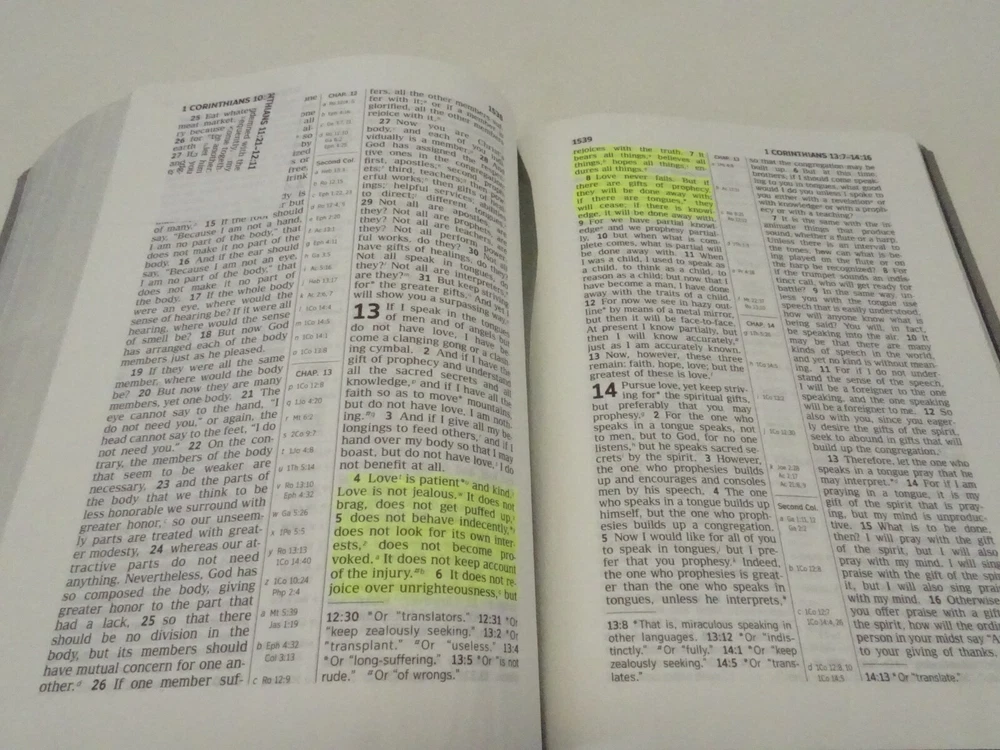 1 CORINTHIANS 10:
25 Eat whatev
meat market,
ry because
26 for "
earth
27 If
of many. 15 If the foot should
say, "Because I am not a hand,
I am no part of the body," that
does not make it no part of the
body. 16 And if the ear should
say, "Because I am not an eye,
I am no part of the body," that
does not make it no part of
the body. 17 If the whole body
were an eye, where would the
sense of hearing be? If it were all
hearing, where would the sense
of smell be? 18 But now God
has arranged each of the body
members just as he pleased.
19 If they were all the same
member, where would the body
be? 20 But now they are many
members, yet one body. 21 The
eye cannot say to the hand, "I
do not need you," or again, the
head cannot say to the feet, "I do
not need you." 22 On the con-
trary, the members of the body
that seem to be weaker are
necessary, 23 and the parts of
the body that we think to be
less honorable we surround with
greater honor, so our unseem-
ly parts are treated with great-
er modesty, 24 whereas our at-
tractive parts do not need
anything. Nevertheless, God has
so composed the body, giving
greater honor to the part that
had a lack, 25 so that there
should be no division in the
body, but its members should
have mutual concern for one an-
other. 26 If one member suf-
CHAP. 12
Second Col.
CHAP. 13
p 1Co 12:8
q 1Jo 4:20
r Mt 6:2
s 2Co 9:7
t 1Jo 4:8
u 1Th 5:14
v Ro 13:10
Eph 4:32
w Ga 5:26
x 1Pe 5:5
y Ro 13:13
1Co 14:40
z 1Co 10:24
Php 2:4
a Mt 5:39
Jas 1:19
b Eph 4:32
Col 3:13
c Ro 12:9
fers, all the other members
fer with it; or if a
glorified, all the other
rejoice with it.
27 Now you are Christ'
body, and each of you
vidually is a member. 28
God has assigned the
tive ones in the congregation:
first, apostles; second, proph-
ets; third, teachers; then pow-
erful works; then gifts of heal-
ings; helpful services; abilities
to direct; different tongues.
29 Not all are apostles, are
they? Not all are prophets, are
they? Not all are teachers, are
they? Not all perform power-
ful works, do they? 30 Not all
have gifts of healings, do they?
Not all speak in tongues, do
they? Not all are interpreters, are
they? 31 But keep striving
for* the greater gifts. And yet I
will show you a surpassing way.
13 If I speak in the tongues
of men and of angels but
do not have love, I have be-
come a clanging gong or a clash-
ing cymbal. 2 And if I have the
gift of prophecy and understand
all the sacred secrets and all
knowledge, and if I have all the
faith so as to move* mountains,
but do not have love, I am noth-
ing. 3 And if I give all my be-
longings to feed others, and if I
hand over my body so that I may
boast, but do not have love, I do
not benefit at all.
4 Love is patient* and kind.
Love is not jealous. It does not
brag, does not get puffed up,
5 does not behave indecently,*
does not look for its own inter-
ests, does not become pro-
voked. It does not keep account
of the injury. 6 It does not re-
joice over unrighteousness, but
12:30 *Or "translators." 12:31 *Or
"keep zealously seeking." 13:2 *Or
"transplant." #Or "useless." 13:4
*Or "long-suffering." 13:5 *Or "is not
rude." #Or "of wrongs."
1539
1 CORINTHIANS 13:7–14:16
rejoices with the truth. 7 It
bears all things, believes all
things, hopes all things, en-
dures all things.
8 Love never fails. But if
there are gifts of prophecy,
they will be done away with;
if there are tongues,* they
will cease; if there is knowl-
edge, it will be done away with.
9 For we have partial knowl-
edge and we prophesy partial-
ly, 10 but when what is com-
plete comes, what is partial will
be done away with. 11 When
I was a child, I used to speak as
a child, to think as a child, to
reason as a child; but now that I
have become a man, I have done
away with the traits of a child.
12 For now we see in hazy out-
line* by means of a metal mirror,
but then it will be face-to-face.
At present I know partially, but
then I will know accurately,
just as I am accurately known.
13 Now, however, these three
remain: faith, hope, love; but the
greatest of these is love.
14 Pursue love, yet keep striv-
ing for* the spiritual gifts,
but preferably that you may
prophesy. 2 For the one who
speaks in a tongue speaks, not
to men, but to God, for no one
listens, but he speaks sacred se-
crets by the spirit. 3 However,
the one who prophesies builds
up and encourages and consoles
men by his speech. 4 The one
who speaks in a tongue builds up
himself, but the one who proph-
esies builds up a congregation.
5 Now I would like for all of you
to speak in tongues, but I pre-
fer that you prophesy. Indeed,
the one who prophesies is great-
er than the one who speaks in
tongues, unless he interprets,*
13:8 *That is, miraculous speaking in
other languages. 13:12 *Or "indis-
tinctly." #Or "fully." 14:1 *Or "keep
zealously seeking." 14:5 *Or "trans-
lates."
CHAP. 13
CHAP. 14
Second Col.
c 1Co 12:7
1Co 14:4, 26
d 1Co 12:8, 10
1Co 14:5
so that the congregation may be
built up. 6 But at this time,
brothers, if I should come speak-
ing to you in tongues, what good
would I do you unless I spoke to
you either with a revelation or
with knowledge or with a proph-
ecy or with a teaching?
7 It is the same with in-
animate things that produce
sound, whether a flute or a harp.
Unless there is an interval to
the tones, how can what is be-
ing played on the flute or on
the harp be recognized? 8 For
if the trumpet sounds an indis-
tinct call, who will get ready for
battle? 9 In the same way, un-
less you with the tongue use
speech that is easily understood,
how will anyone know what is
being said? You will, in fact,
be speaking into the air. 10 It
may be that there are many
kinds of speech in the world,
and yet no kind is without mean-
ing. 11 For if I do not under-
stand the sense of the speech,
I will be a foreigner to the one
speaking, and the one speaking
will be a foreigner to me. 12 So
also with you, since you eager-
ly desire the gifts of the spirit,
seek to abound in gifts that will
build up the congregation.
13 Therefore, let the one who
speaks in a tongue pray that he
may interpret.* 14 For if I am
praying in a tongue, it is my
gift of the spirit that is pray-
ing, but my mind is unproduc-
tive. 15 What is to be done,
then? I will pray with the gift
of the spirit, but I will also
pray with my mind. I will sing
praise with the gift of the spir
it, but I will also sing prai
with my mind. 16 Otherwise
you offer praise with a gif
the spirit, how will the ordi
person in your midst say "A
to your giving of thanks,
14:13 *Or "translate."